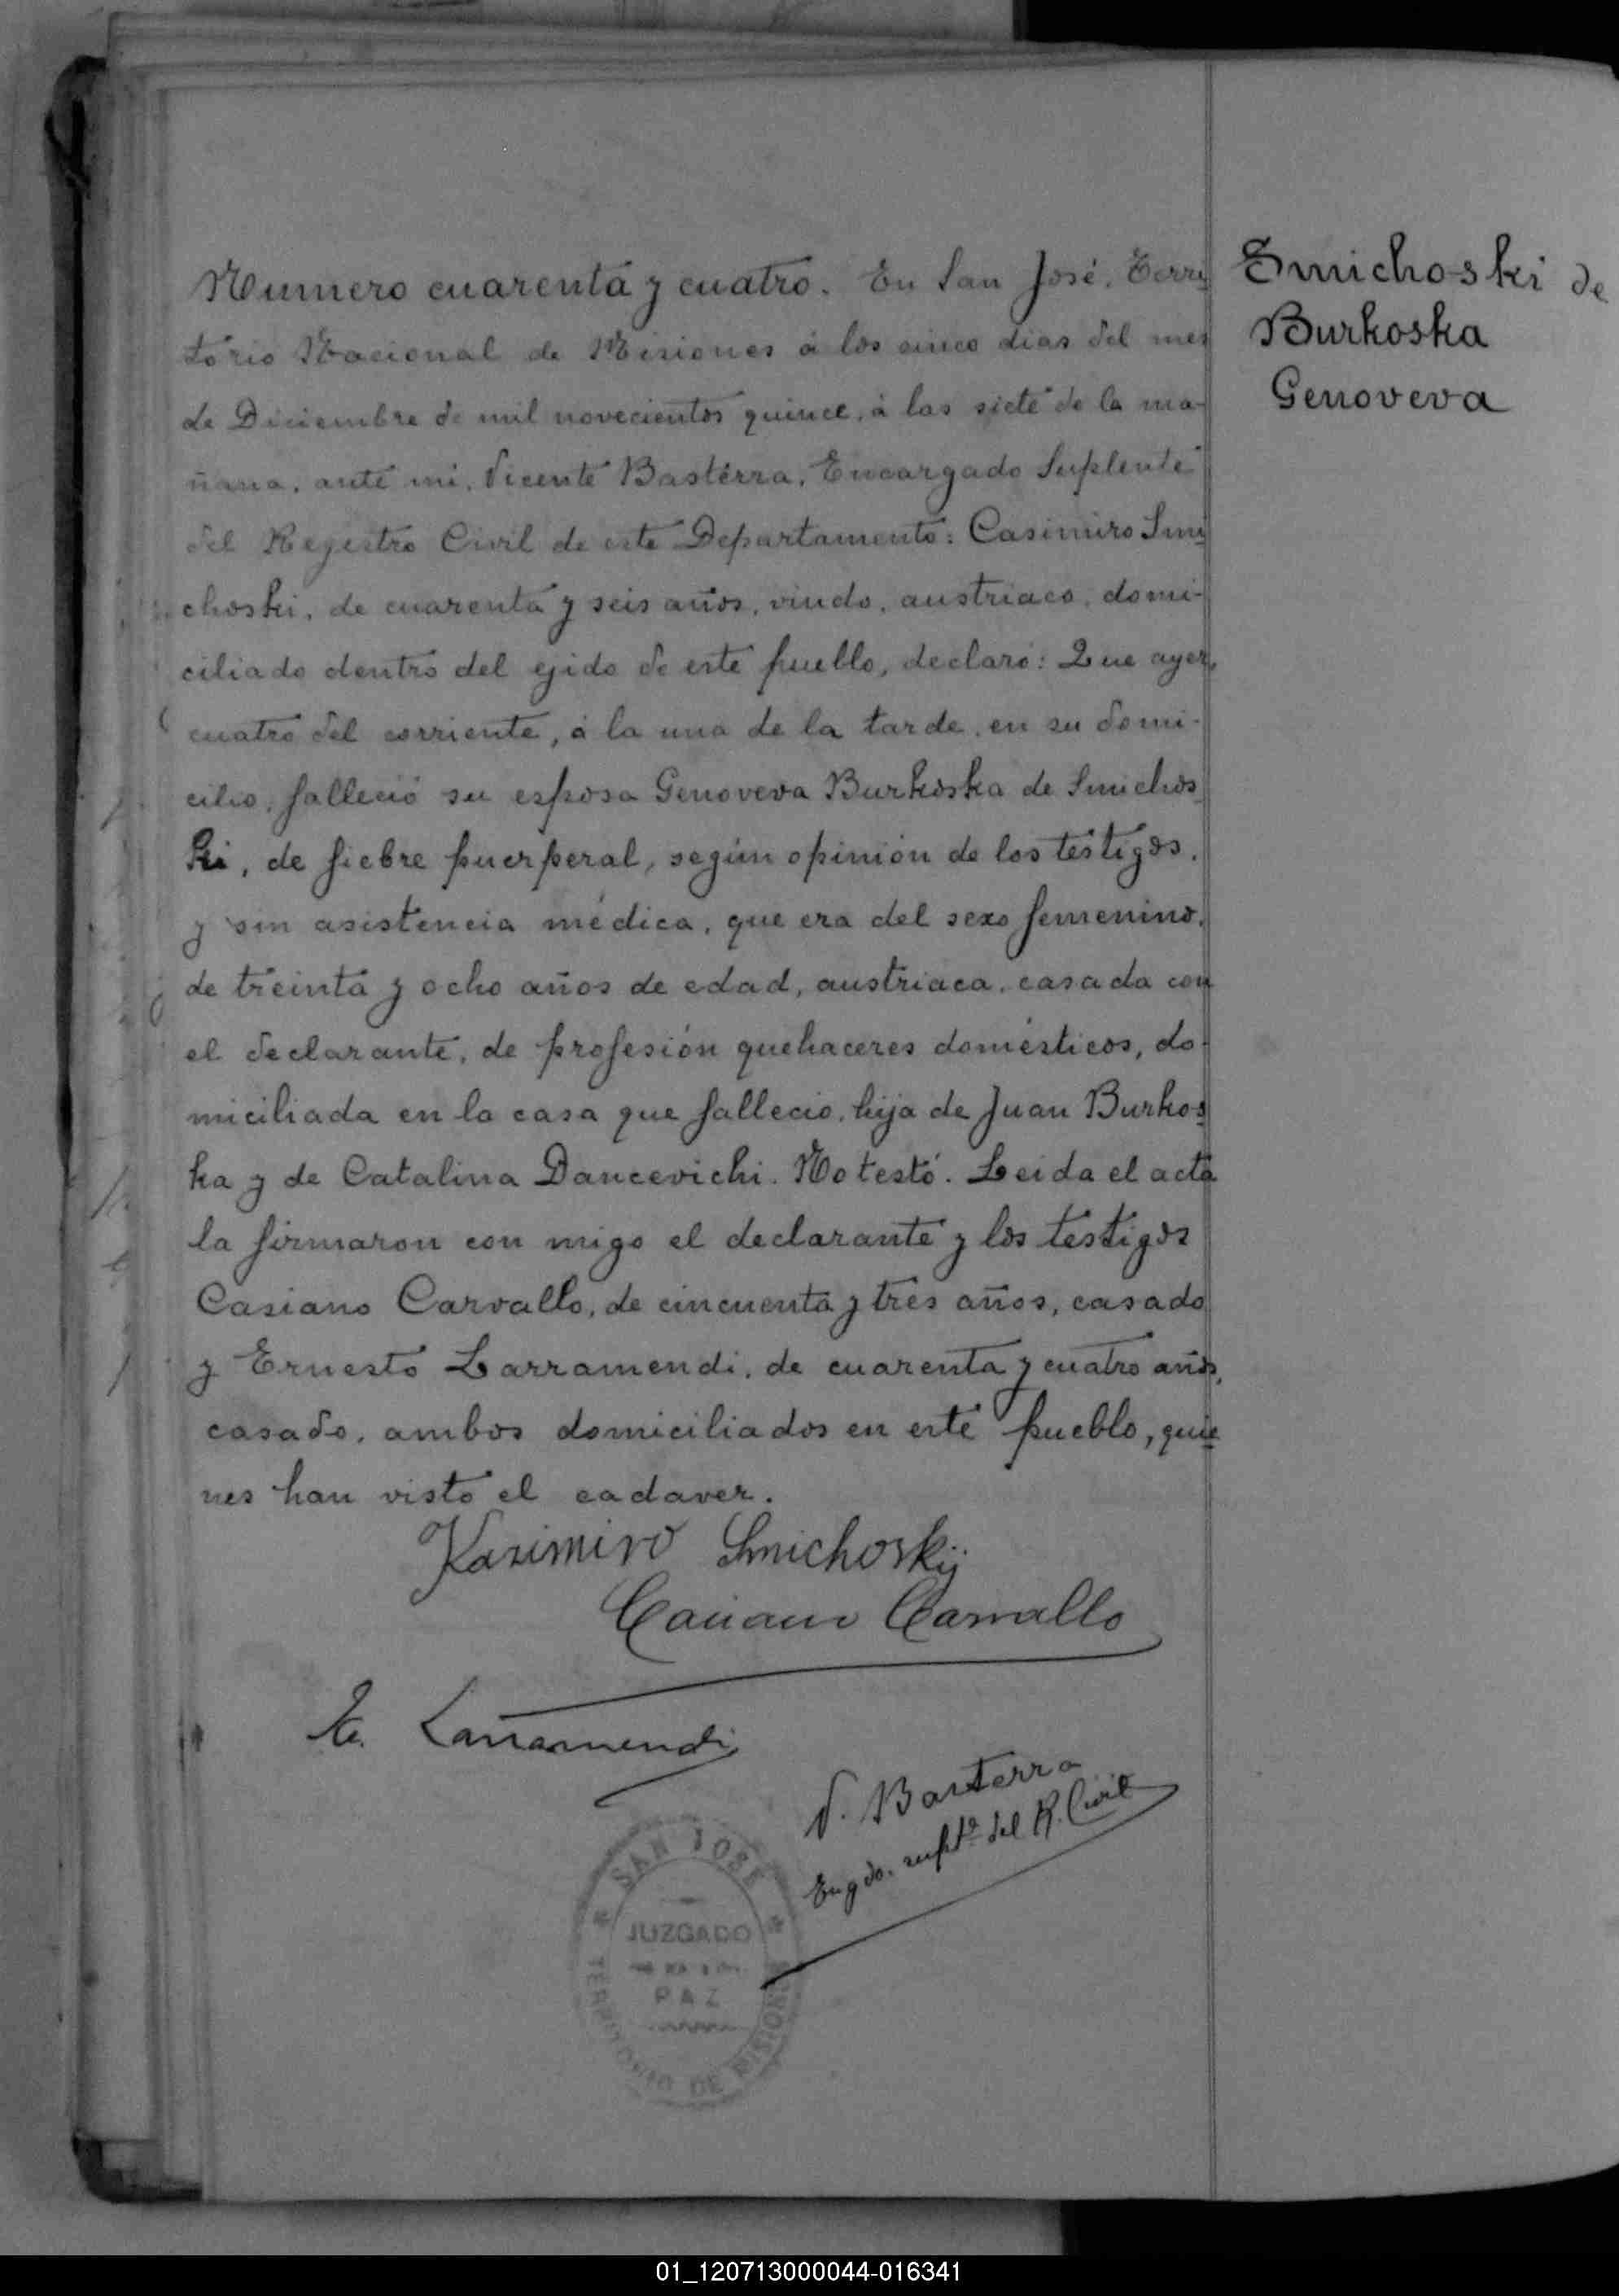 Numero cuarenta y cuatro. En San José, Terri
torio Nacional de Misiones á los cinco dias del mes
de Diciembre de mil novecientos quince, á las siete de la ma-
ñana, ante mi, Vicente Basterra, Encargado Suplente
del Registro Civil de este Departamento: Casimiro Smi
choski, de cuarenta y seis años, viudo, austriaco, domi-
ciliado dentro del ejido de este pueblo, declaró: Que ayer,
cuatro del corriente, á la una de la tarde, en su domi-
cilio, falleció su esposa Genoveva Burkoska de Smichos
ki, de fiebre puerperal, según opinión de los testigos,
y sin asistencia médica, que era del sexo femenino,
de treinta y ocho años de edad, austriaca, casada con
el declarante, de profesión quehaceres domésticos, do-
miciliada en la casa que falleció, hija de Juan Burkos
ka y de Catalina Dancevichi. No testó. Leida el acta
la firmaron con migo el declarante y los testigos
Casiano Carvallo, de cincuenta y tres años, casado
y Ernesto Larramendi, de cuarenta y cuatro años,
casado, ambos domiciliados en este pueblo, quie
nes han visto el cadaver.
Kasimiro Smichoskij
Casiano Carvallo
E. Larramendi
V. Basterra
Engdo. suplte. del R. Civil
Smichoski de
Burkoska
Genoveva
SAN JOSE
JUZGADO
PAZ
TERRITORIO DE MISIONES
01_120713000044-016341